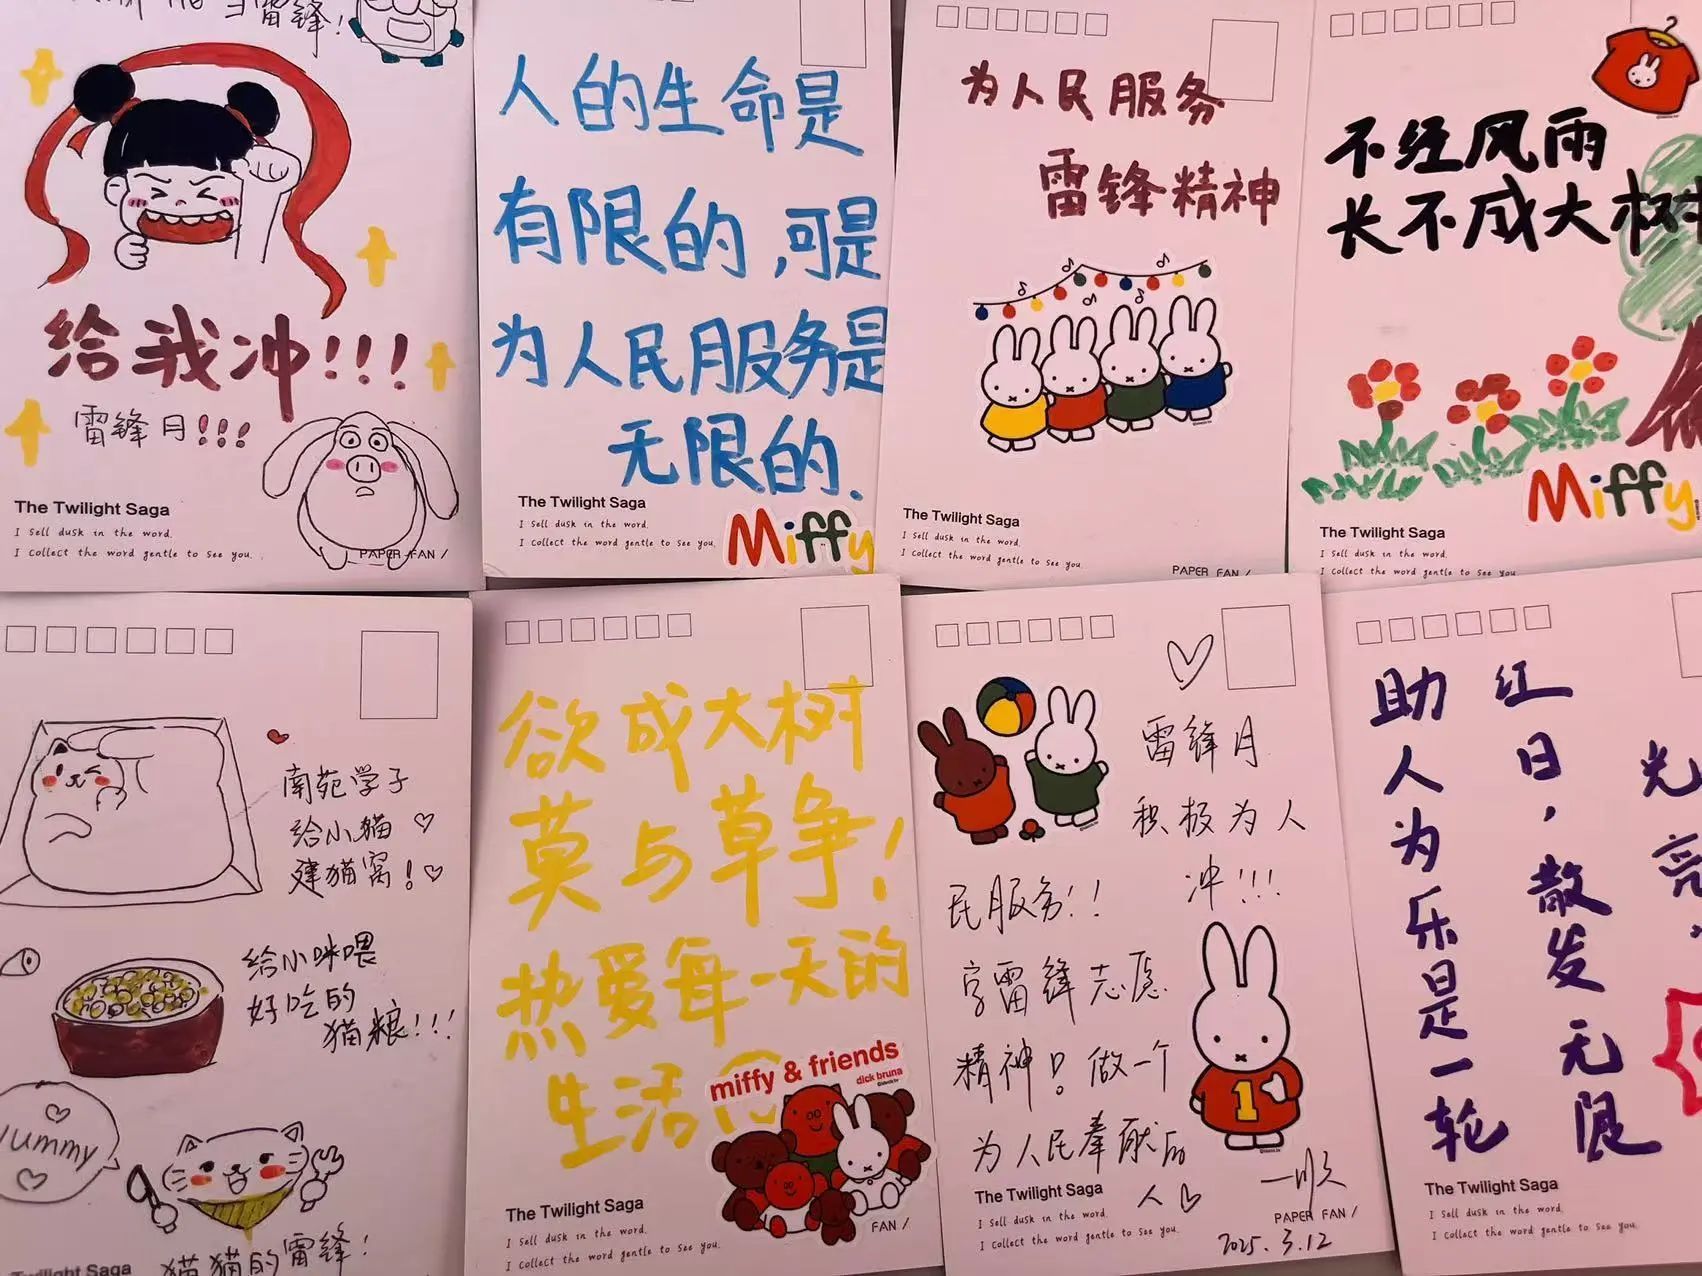 当雷锋!
给我冲!!!
雷锋月!!!
The Twilight Saga
I sell dusk in the word.
I collect the word gentle to see you.
PAPER FAN /
人的生命是
有限的,可是
为人民服务是
无限的.
The Twilight Saga
I sell dusk in the word.
I collect the word gentle to see you.
Miffy
为人民服务
雷锋精神
The Twilight Saga
I sell dusk in the word.
I collect the word gentle to see you.
PAPER FAN /
不经风雨
长不成大树
Miffy
The Twilight Saga
I sell dusk in the word.
I collect the word gentle to see you.
南苑学子
给小猫
建猫窝!
给小咪喂
好吃的
猫粮!!!
Yummy
猫猫的雷锋!
The Twilight Saga
欲成大树
莫与草争!
热爱每一天的
生活
miffy & friends
dick bruna
The Twilight Saga
I sell dusk in the word.
I collect the word gentle to see you.
FAN /
雷锋月
积极为人
民服务!!
冲!!!
学雷锋志愿
精神!做一个
为人民奉献的
人
1
The Twilight Saga
I sell dusk in the word.
I collect the word gentle to see you.
PAPER FAN /
2025.3.12
助人为乐是一轮
红日,散发无限
光亮.
The Twilight Saga
I sell dusk in the word.
I collect the word gentle to see you.